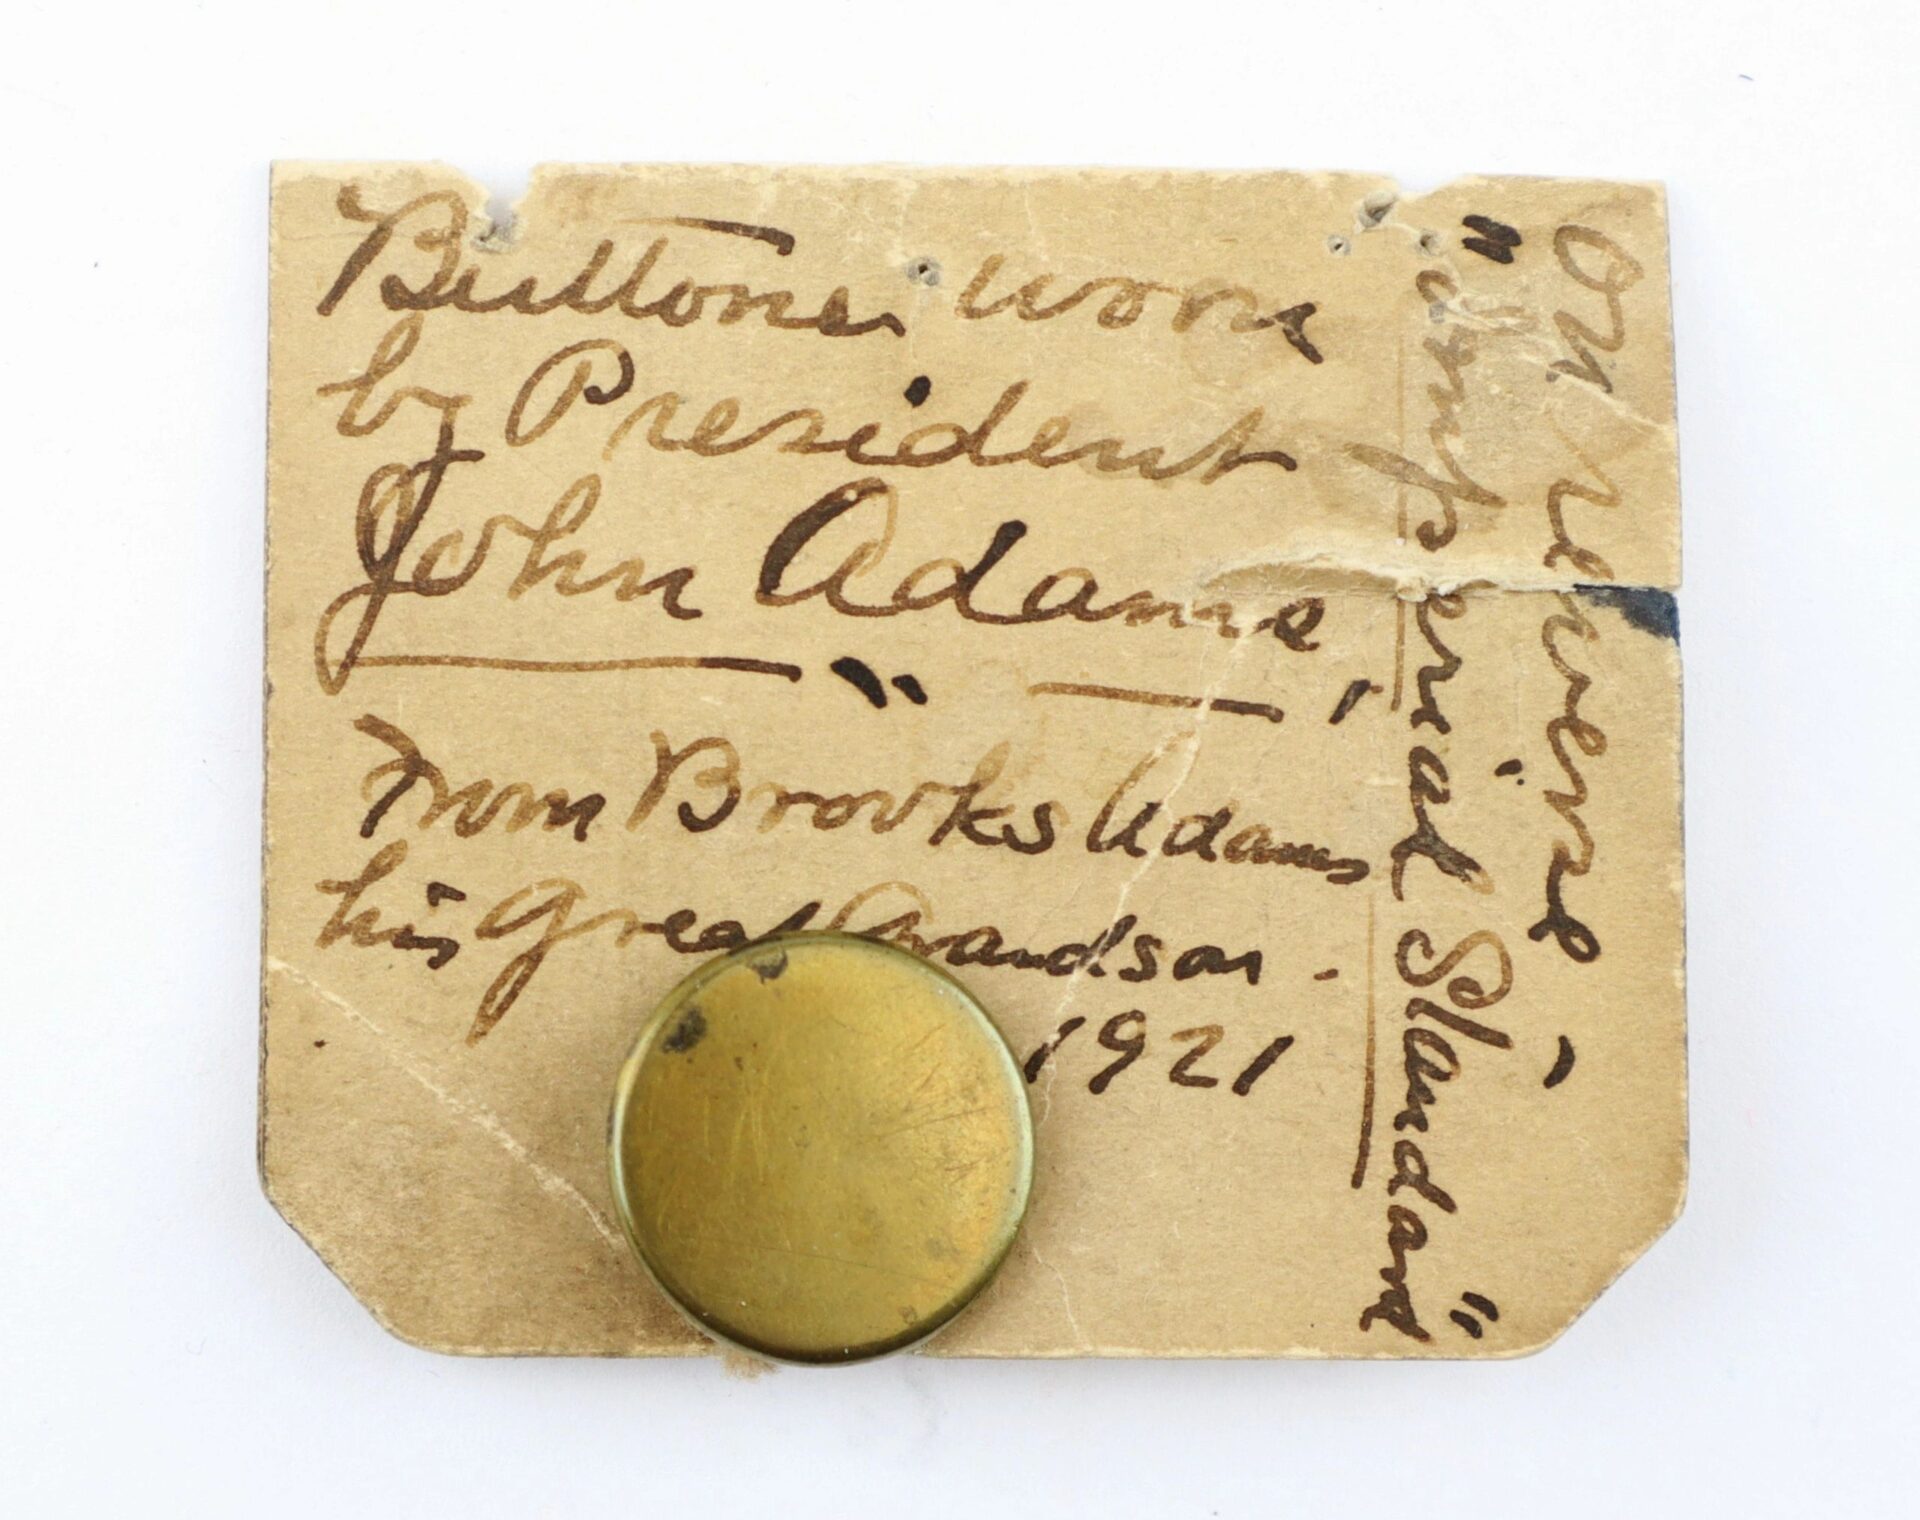 Buttons worn
by President
John Adams
"
From Brooks Adams
his Great Grandson.
1921
on reverse
"Imperial Standard"